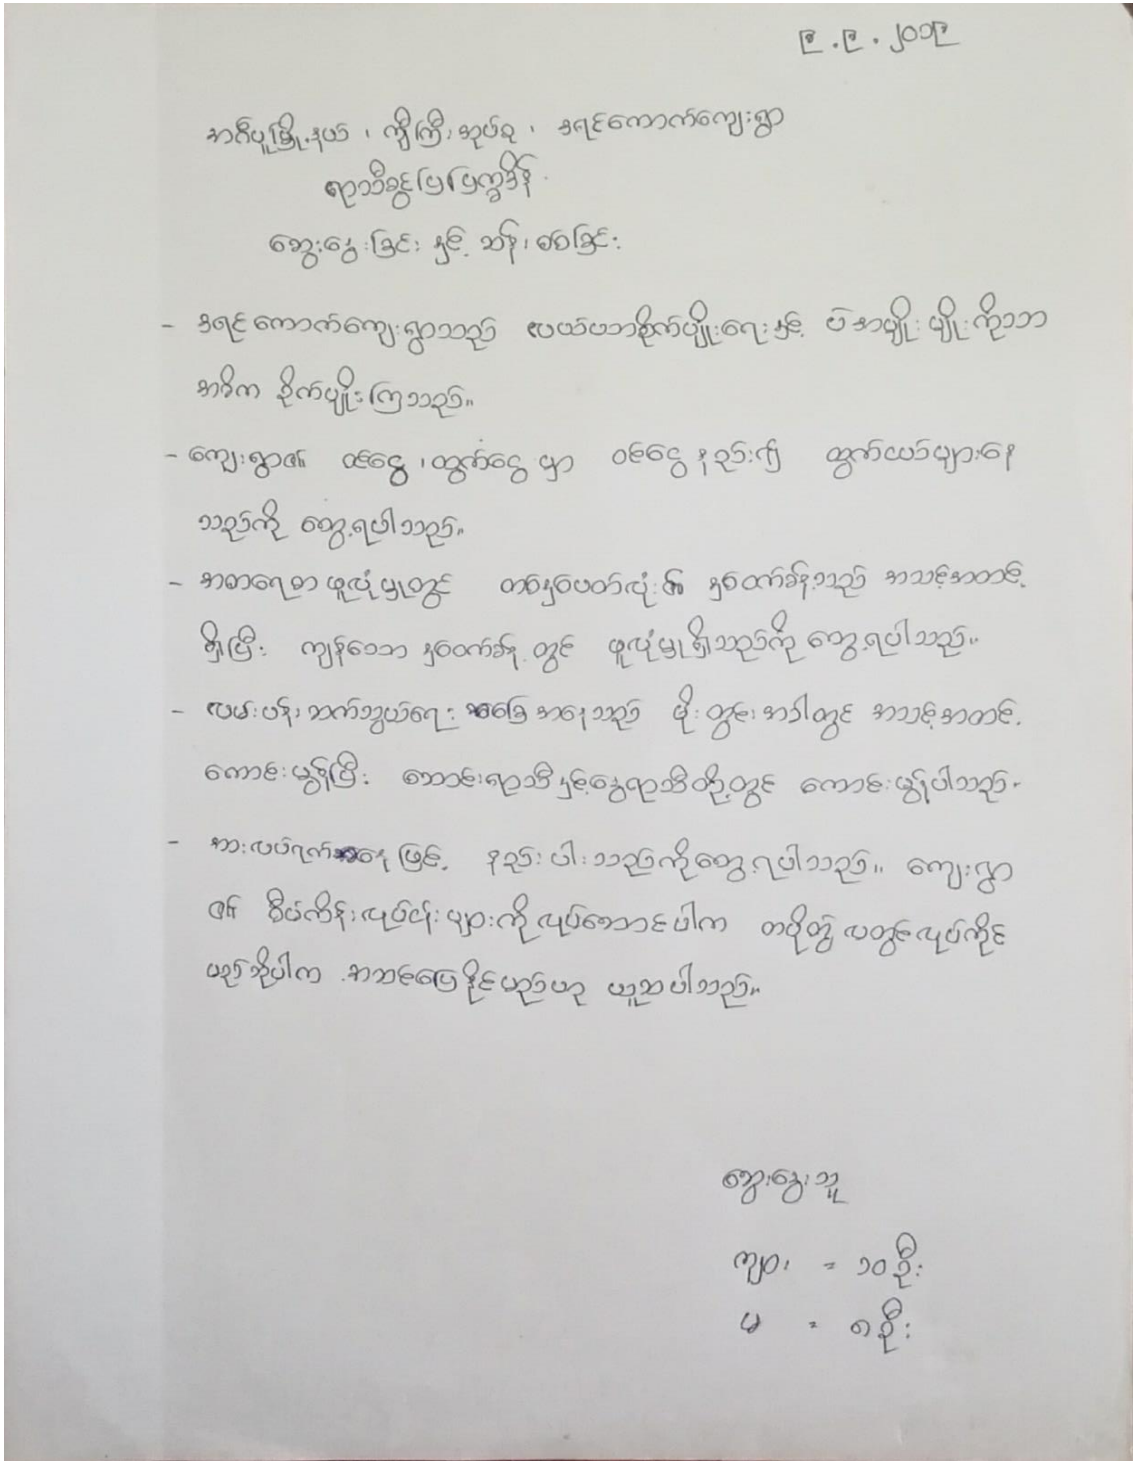 ၉.၉.၂၀၁၉
အင်္ဂပူမြို့နယ်၊ ကျီကြီးအုပ်စု၊ ခရင်ကောက်ကျေးရွာ
ရာသီခွင်ပြပြက္ခဒိန်
ဆွေးနွေးခြင်း နှင့် ဆန်းစစ်ခြင်း
- ခရင်ကောက်ကျေးရွာသည် လယ်ယာစိုက်ပျိုးရေးနှင့် ပဲအမျိုးမျိုးကိုသာ
အဓိက စိုက်ပျိုးကြသည်။
- ကျေးရွာ၏ ဝင်ငွေ၊ထွက်ငွေမှာ ဝင်ငွေနည်း၍ ထွက်ငွေများနေ
သည်ကို တွေ့ရပါသည်။
- အစာရေစာဖူလုံမှုတွင် တစ်နှစ်ပတ်လုံး၏ နှစ်ထက်ခန့်သည် အသင့်အတင့်
ရှိပြီး ကျန်သော နှစ်ထက်ခန့်တွင် ဖူလုံမှုရှိသည်ကို တွေ့ရပါသည်။
- လမ်းပန်းဆက်သွယ်ရေး အခြေအနေသည် မိုးတွင်းအခါတွင် အသင့်အတင့်
ကောင်းမွန်ပြီး ဆောင်းရာသီနှင့်နွေရာသီတို့တွင် ကောင်းမွန်ပါသည်။
- အားလပ်ရက်အနေဖြင့် နည်းပါးသည်ကိုတွေ့ရပါသည်။ ကျေးရွာ
၏ စီမံကိန်းလုပ်ငန်းများကိုလုပ်ဆောင်ပါက တပို့တွဲလတွင်လုပ်ကိုင်
မည်ဆိုပါက အဆင်ပြေနိုင်မည်ဟု ယူဆပါသည်။
ဆွေးနွေးသူ
ကျား = ၁၀ဦး
မ = ၈ဦး